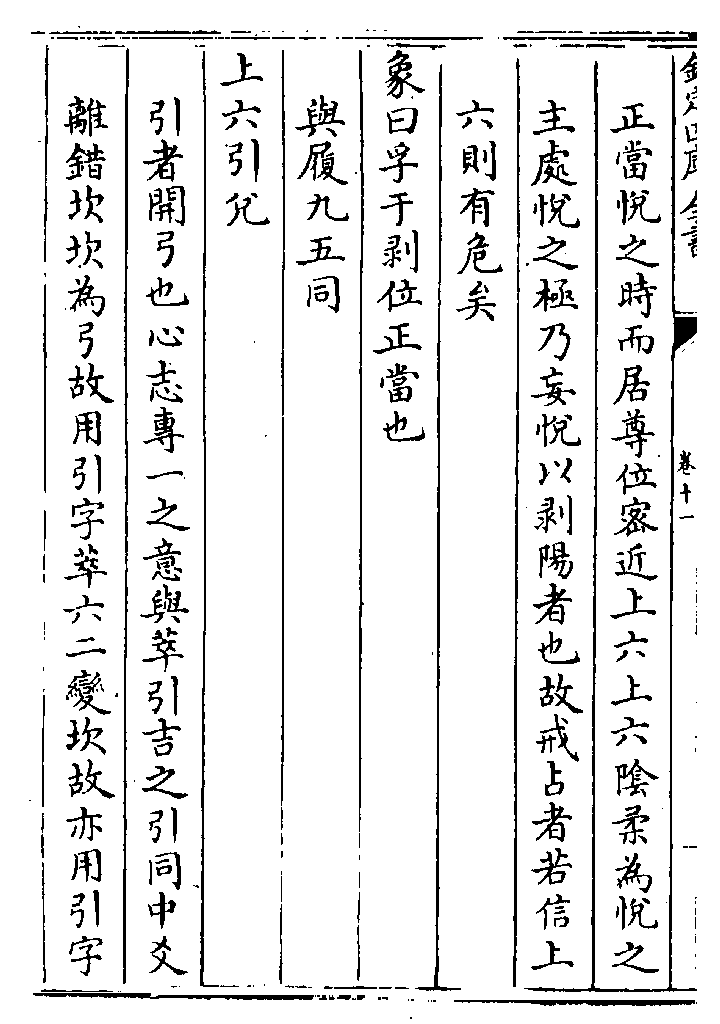 欽定四庫全書
卷十一
正當悅之時而居尊位密近上六上六陰柔為悅之
主處悅之極乃妄悅以剥陽者也故戒占者若信上
六則有危矣
象曰孚于剥位正當也
與履九五同
上六引兌
引者開弓也心志專一之意與萃引吉之引同中爻
離錯坎坎為弓故用引字萃六二變坎故亦用引字